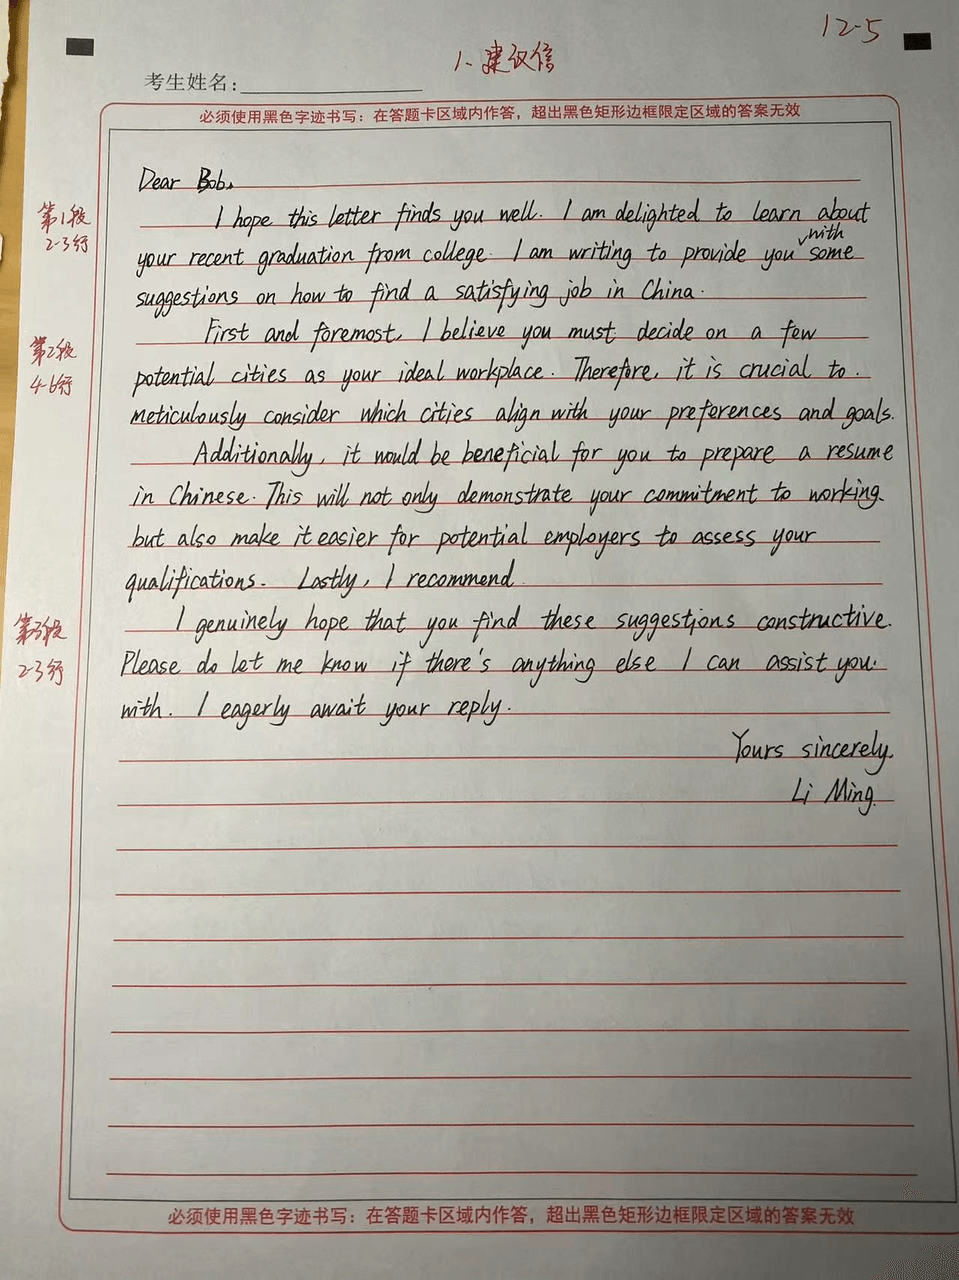 12-5
1、建议信
考生姓名:
必须使用黑色字迹书写：在答题卡区域内作答，超出黑色矩形边框限定区域的答案无效
Dear Bob,
I hope this letter finds you well. I am delighted to learn about
第1段
2-3行
with
your recent graduation from college. I am writing to provide you some
suggestions on how to find a satisfying job in China.
First and foremost, I believe you must decide on a few
第2段
4-6行
potential cities as your ideal workplace. Therefore, it is crucial to
meticulously consider which cities align with your preferences and goals.
Additionally, it would be beneficial for you to prepare a resume
in Chinese. This will not only demonstrate your commitment to working
but also make it easier for potential employers to assess your
qualifications. Lastly, I recommend
I genuinely hope that you find these suggestions constructive.
第3段
2-3行
Please do let me know if there's anything else I can assist you
with. I eagerly await your reply.
Yours sincerely,
Li Ming
必须使用黑色字迹书写：在答题卡区域内作答，超出黑色矩形边框限定区域的答案无效